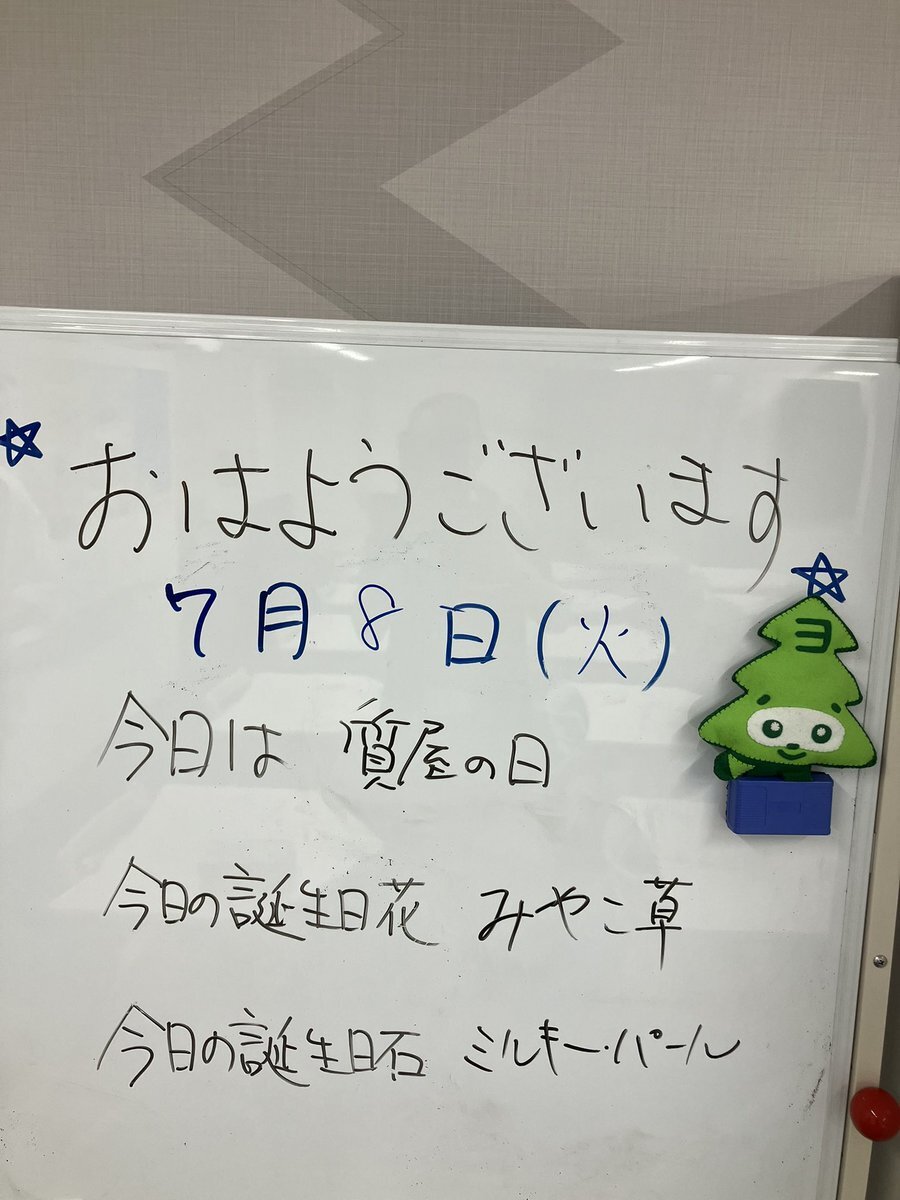 おはようございます
7月8日(火)
ヨ
今日は 質屋の日
今日の誕生日花 みやこ草
今日の誕生日石 ミルキー・パール